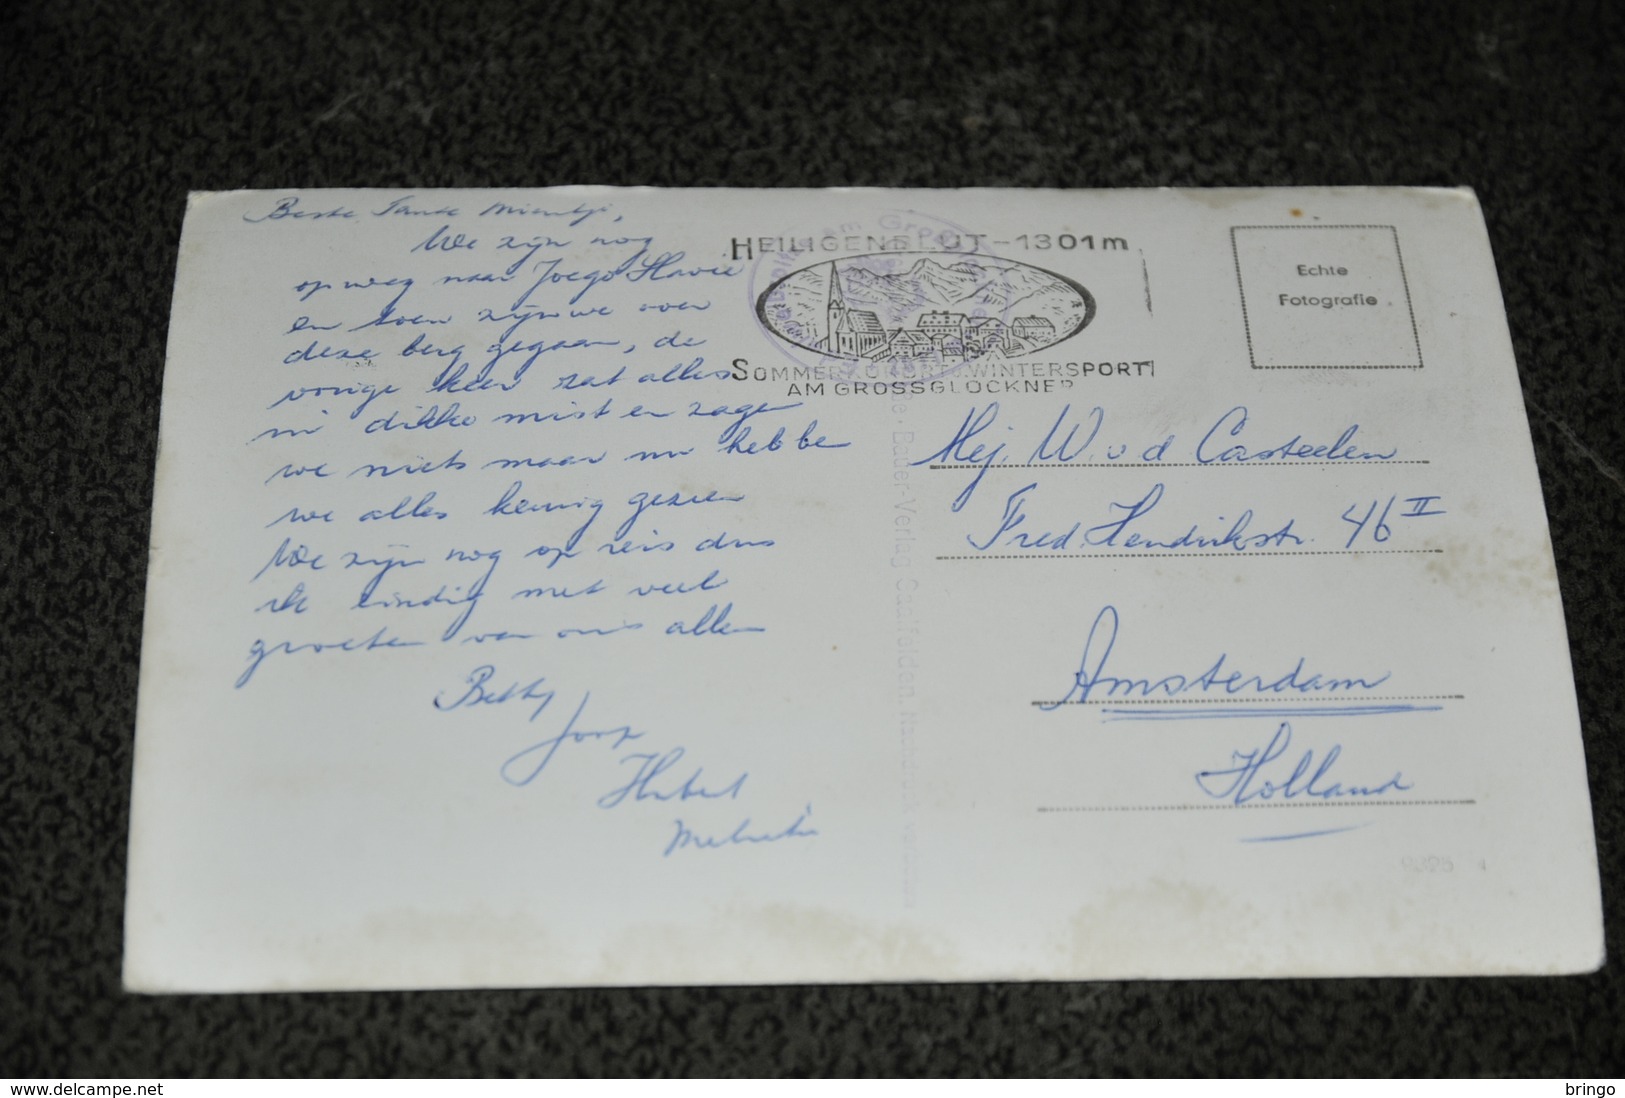 Beste Tante Mientje,
We zijn nog
op weg naar Joego Slavie
en toen zijn we over
deze berg gegaan, de
vorige keer zat alles
in dikke mist en zagen
we niets maar nu hebbe
we alles keurig gezien
We zijn nog op reis dus
ik eindig met veel
groeten van ons allen
Betty
Joop
HEILIGENBLUT - 1301m
SOMMERKURORT WINTERSPORT
AM GROSSGLOCKNER
Echte
Fotografie
Mej. W. v d Casteelen
Fred. Hendrikstr. 46 II
Amsterdam
Holland
Bauer-Verlag Saalfelden. Nachdruck verboten
www.delcampe.net
bringo